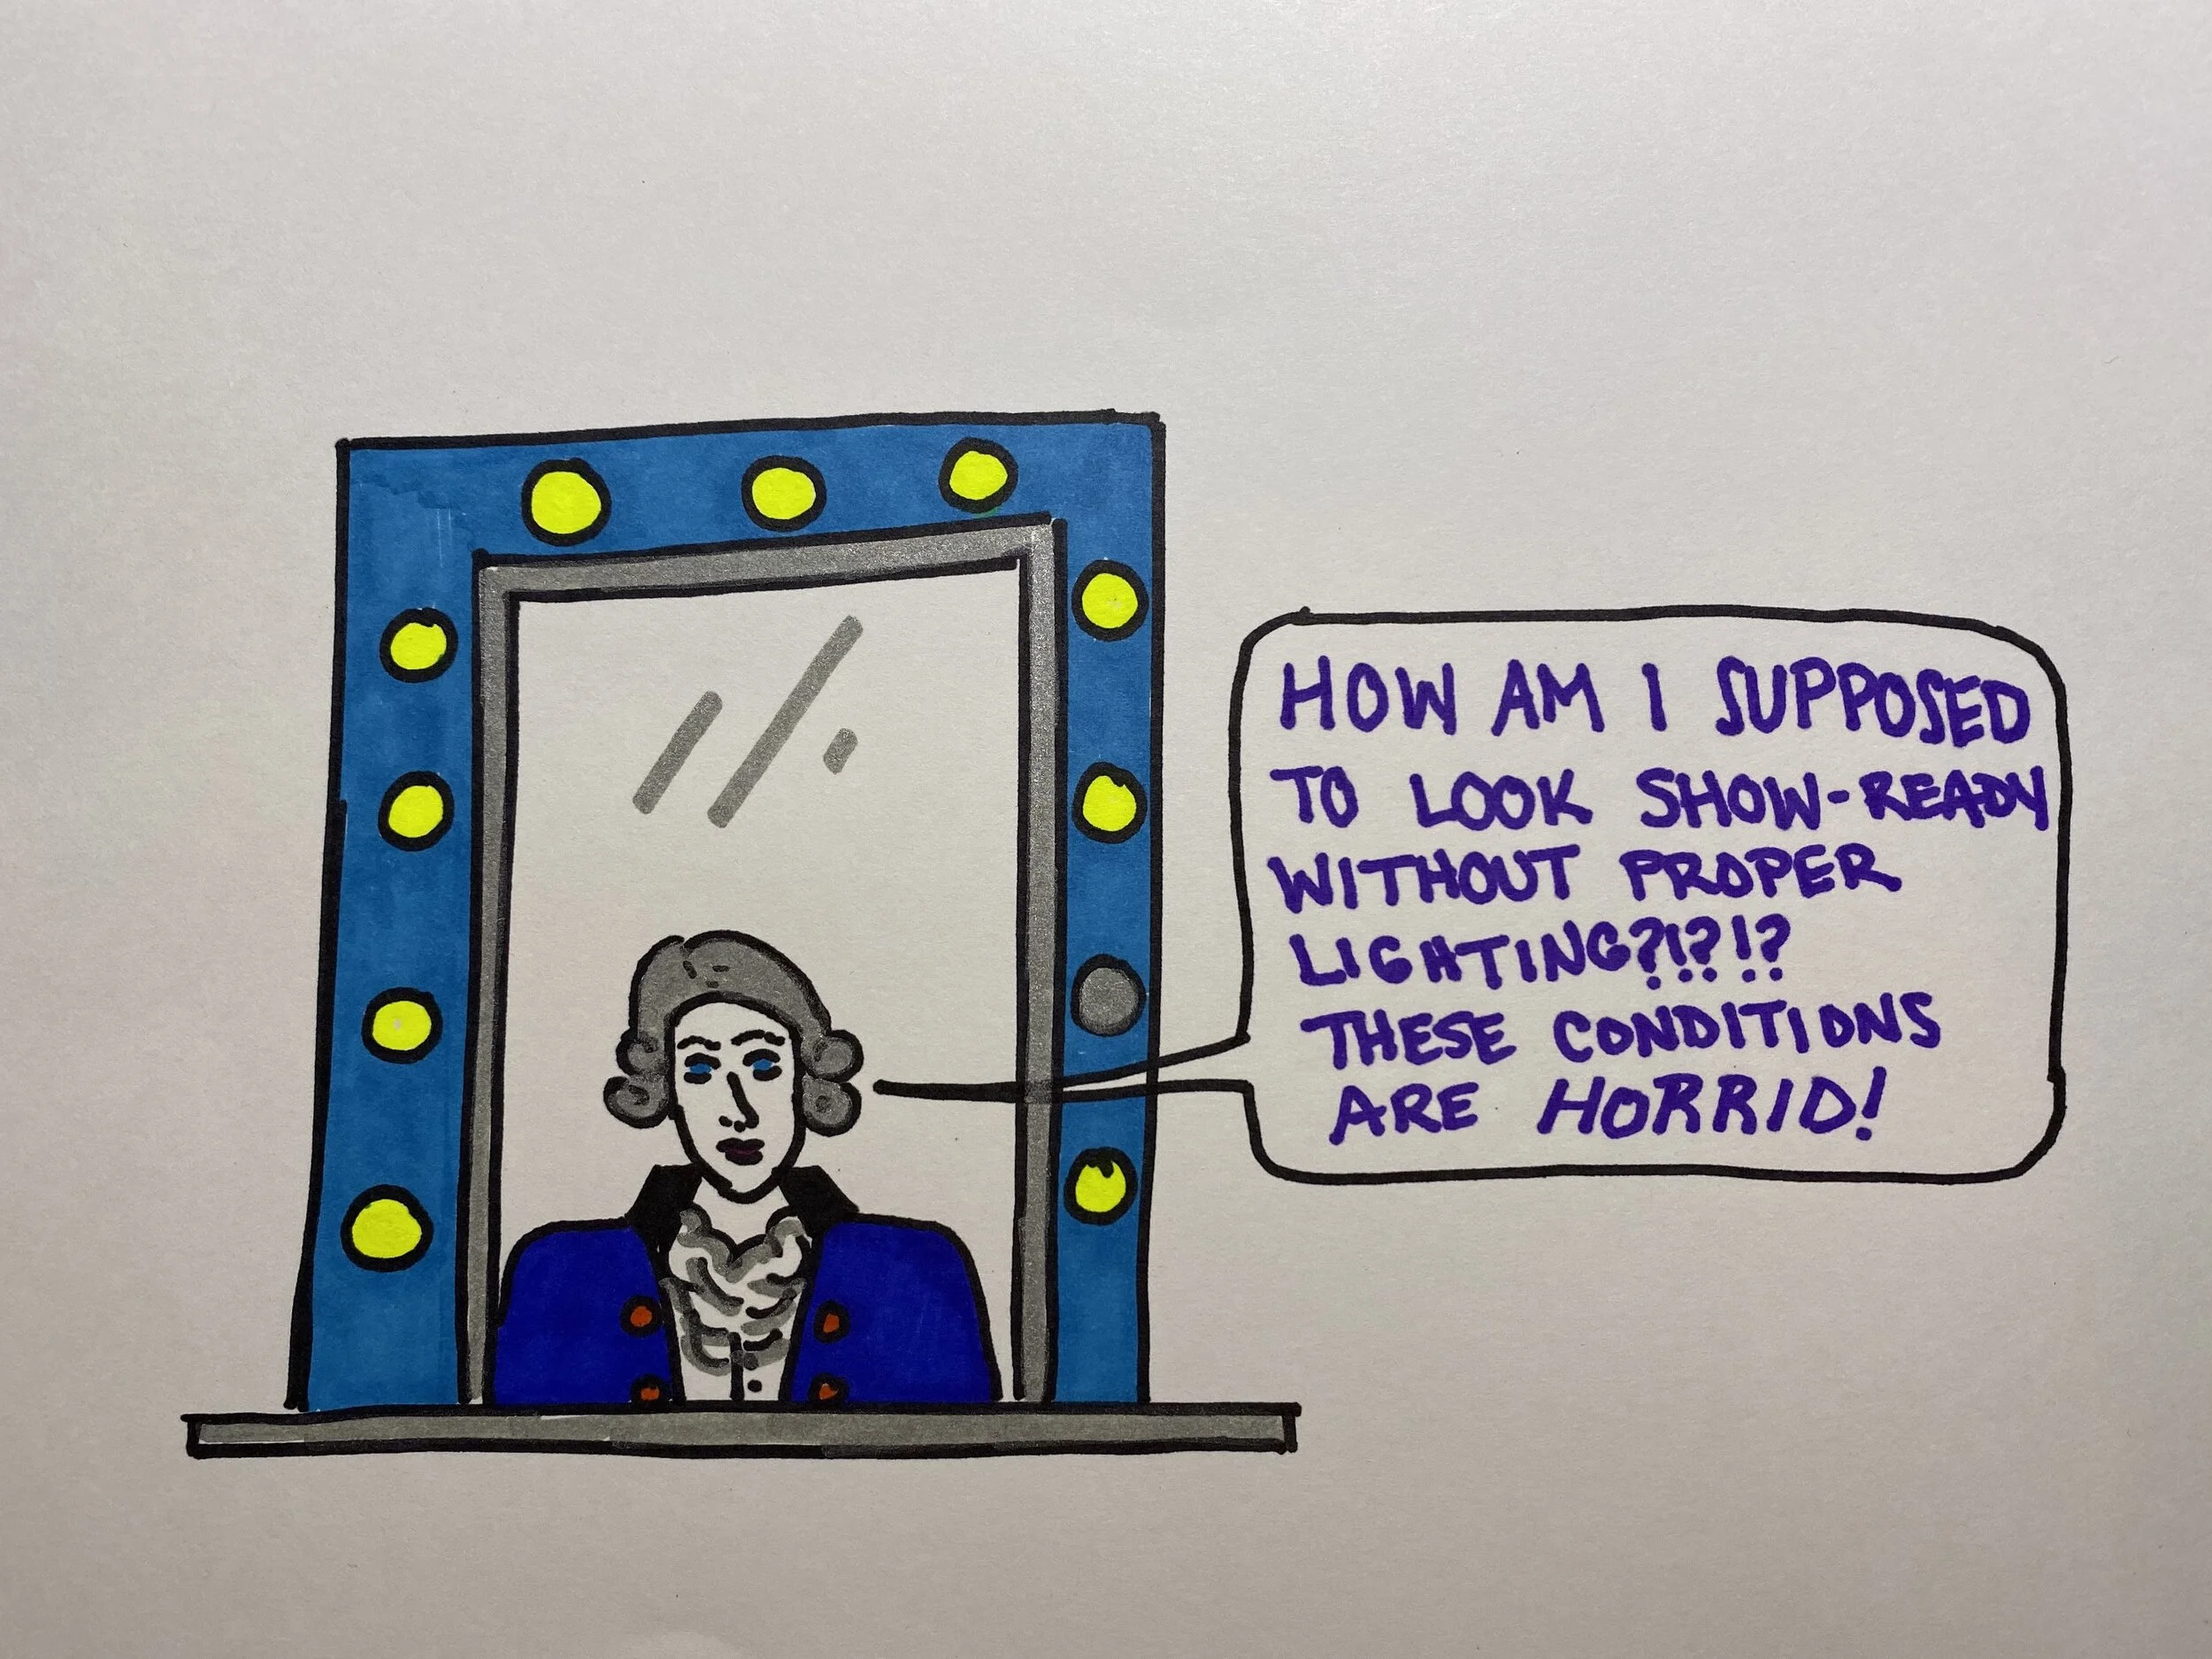 HOW AM I SUPPOSED
TO LOOK SHOW-READY
WITHOUT PROPER
LIGHTING?!?!?
THESE CONDITIONS
ARE HORRID!